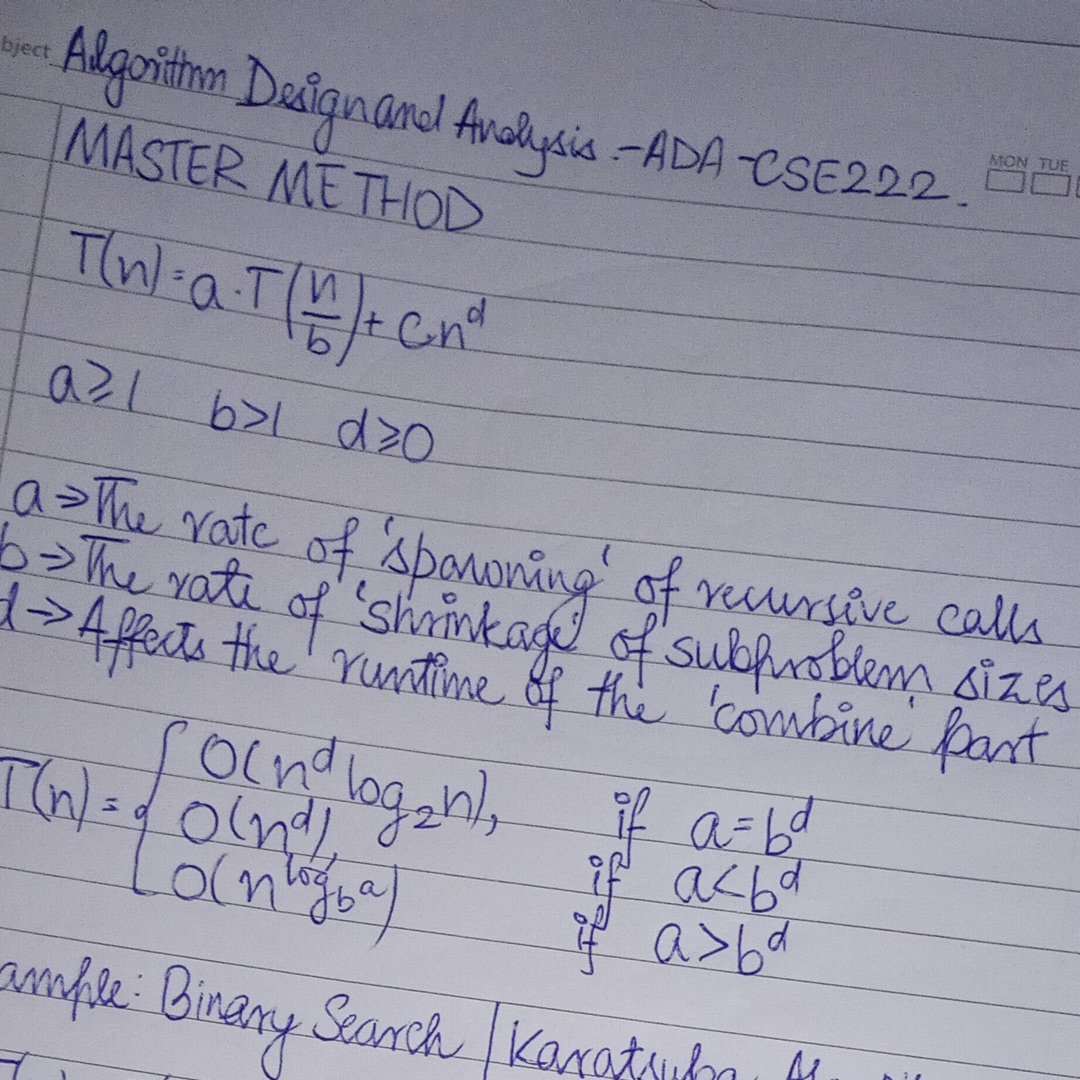 bject Algorithm Design and Analysis.-ADA-CSE222.
MON TUE
MASTER METHOD
T(n)=a.T(n/b)+cn^d
a≥1 b>1 d≥0
a⇒The rate of 'spawning' of recursive calls
b⇒The rate of 'shrinkage' of subproblem sizes
d→Affects the runtime of the 'combine' part
T(n)={O(n^d log_2 n), if a=b^d
O(n^d), if a<b^d
O(n^log_b a) if a>b^d
ample: Binary Search | Karatsuba